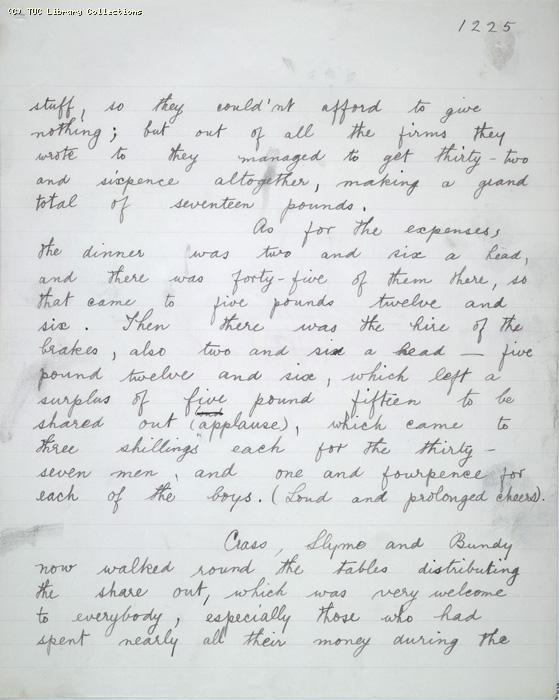 (C) TUC Library Collections
1225
stuff, so they could'nt afford to give
nothing; but out of all the firms they
wrote to they managed to get thirty-two
and sixpence altogether, making a grand
total of seventeen pounds.
As for the expenses,
the dinner was two and six a head,
and there was forty-five of them there, so
that came to five pounds twelve and
six. Then there was the hire of the
brakes, also two and six a head — five
pound twelve and six, which left a
surplus of five pound fifteen to be
shared out (applause), which came to
three shillings each for the thirty-
seven men, and one and fourpence for
each of the boys. (Loud and prolonged cheers).
Crass, Slyme and Bundy
now walked round the tables distributing
the share out, which was very welcome
to everybody, especially those who had
spent nearly all their money during the